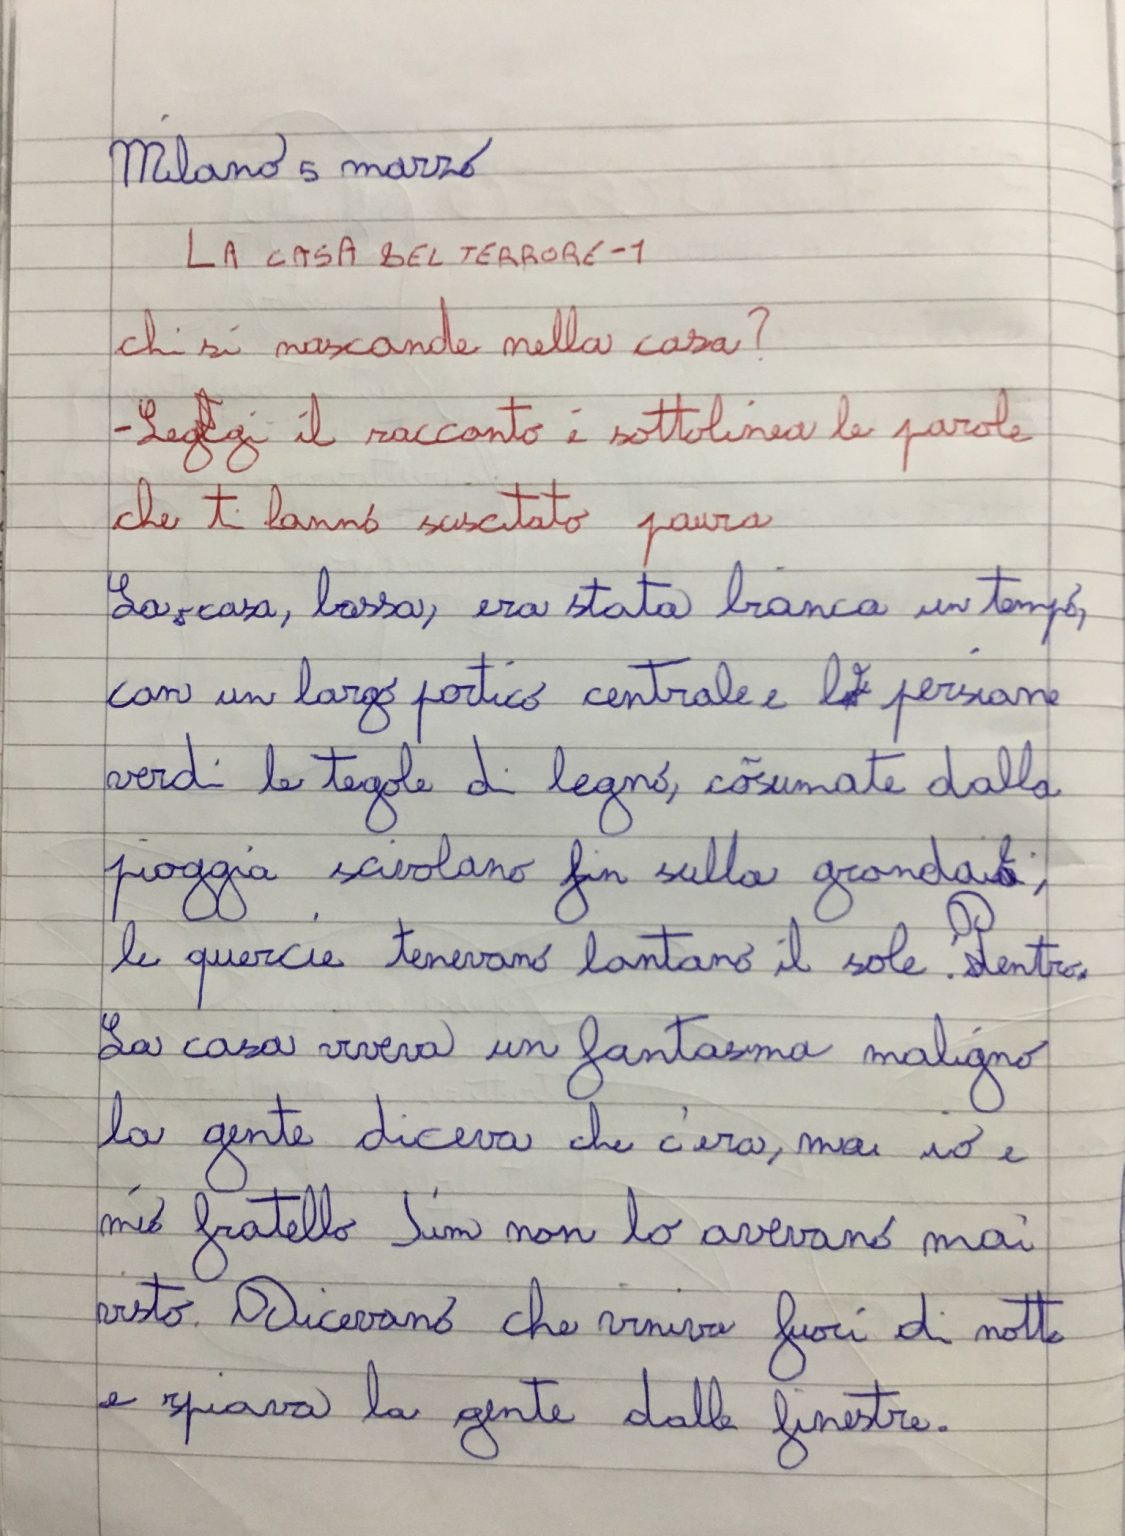 Milano 5 marzo
LA CASA DEL TERRORE-1
chi si nasconde nella casa?
-Leggi il racconto e sottolinea le parole
che ti hanno suscitato paura
La casa, bassa, era stata bianca un tempo,
con un largo portico centrale e le persiane
verdi le tegole di legno, cõsumate dalla
pioggia scivolano fin sulla grondaia,
le quercie tenevano lontano il sole. Dentro.
La casa viveva un fantasma maligno
la gente diceva che c'era, ma io e
mio fratello Jim non lo avevano mai
visto. Dicevano che viniva fuori di notte
e spiava la gente dalle finestre.